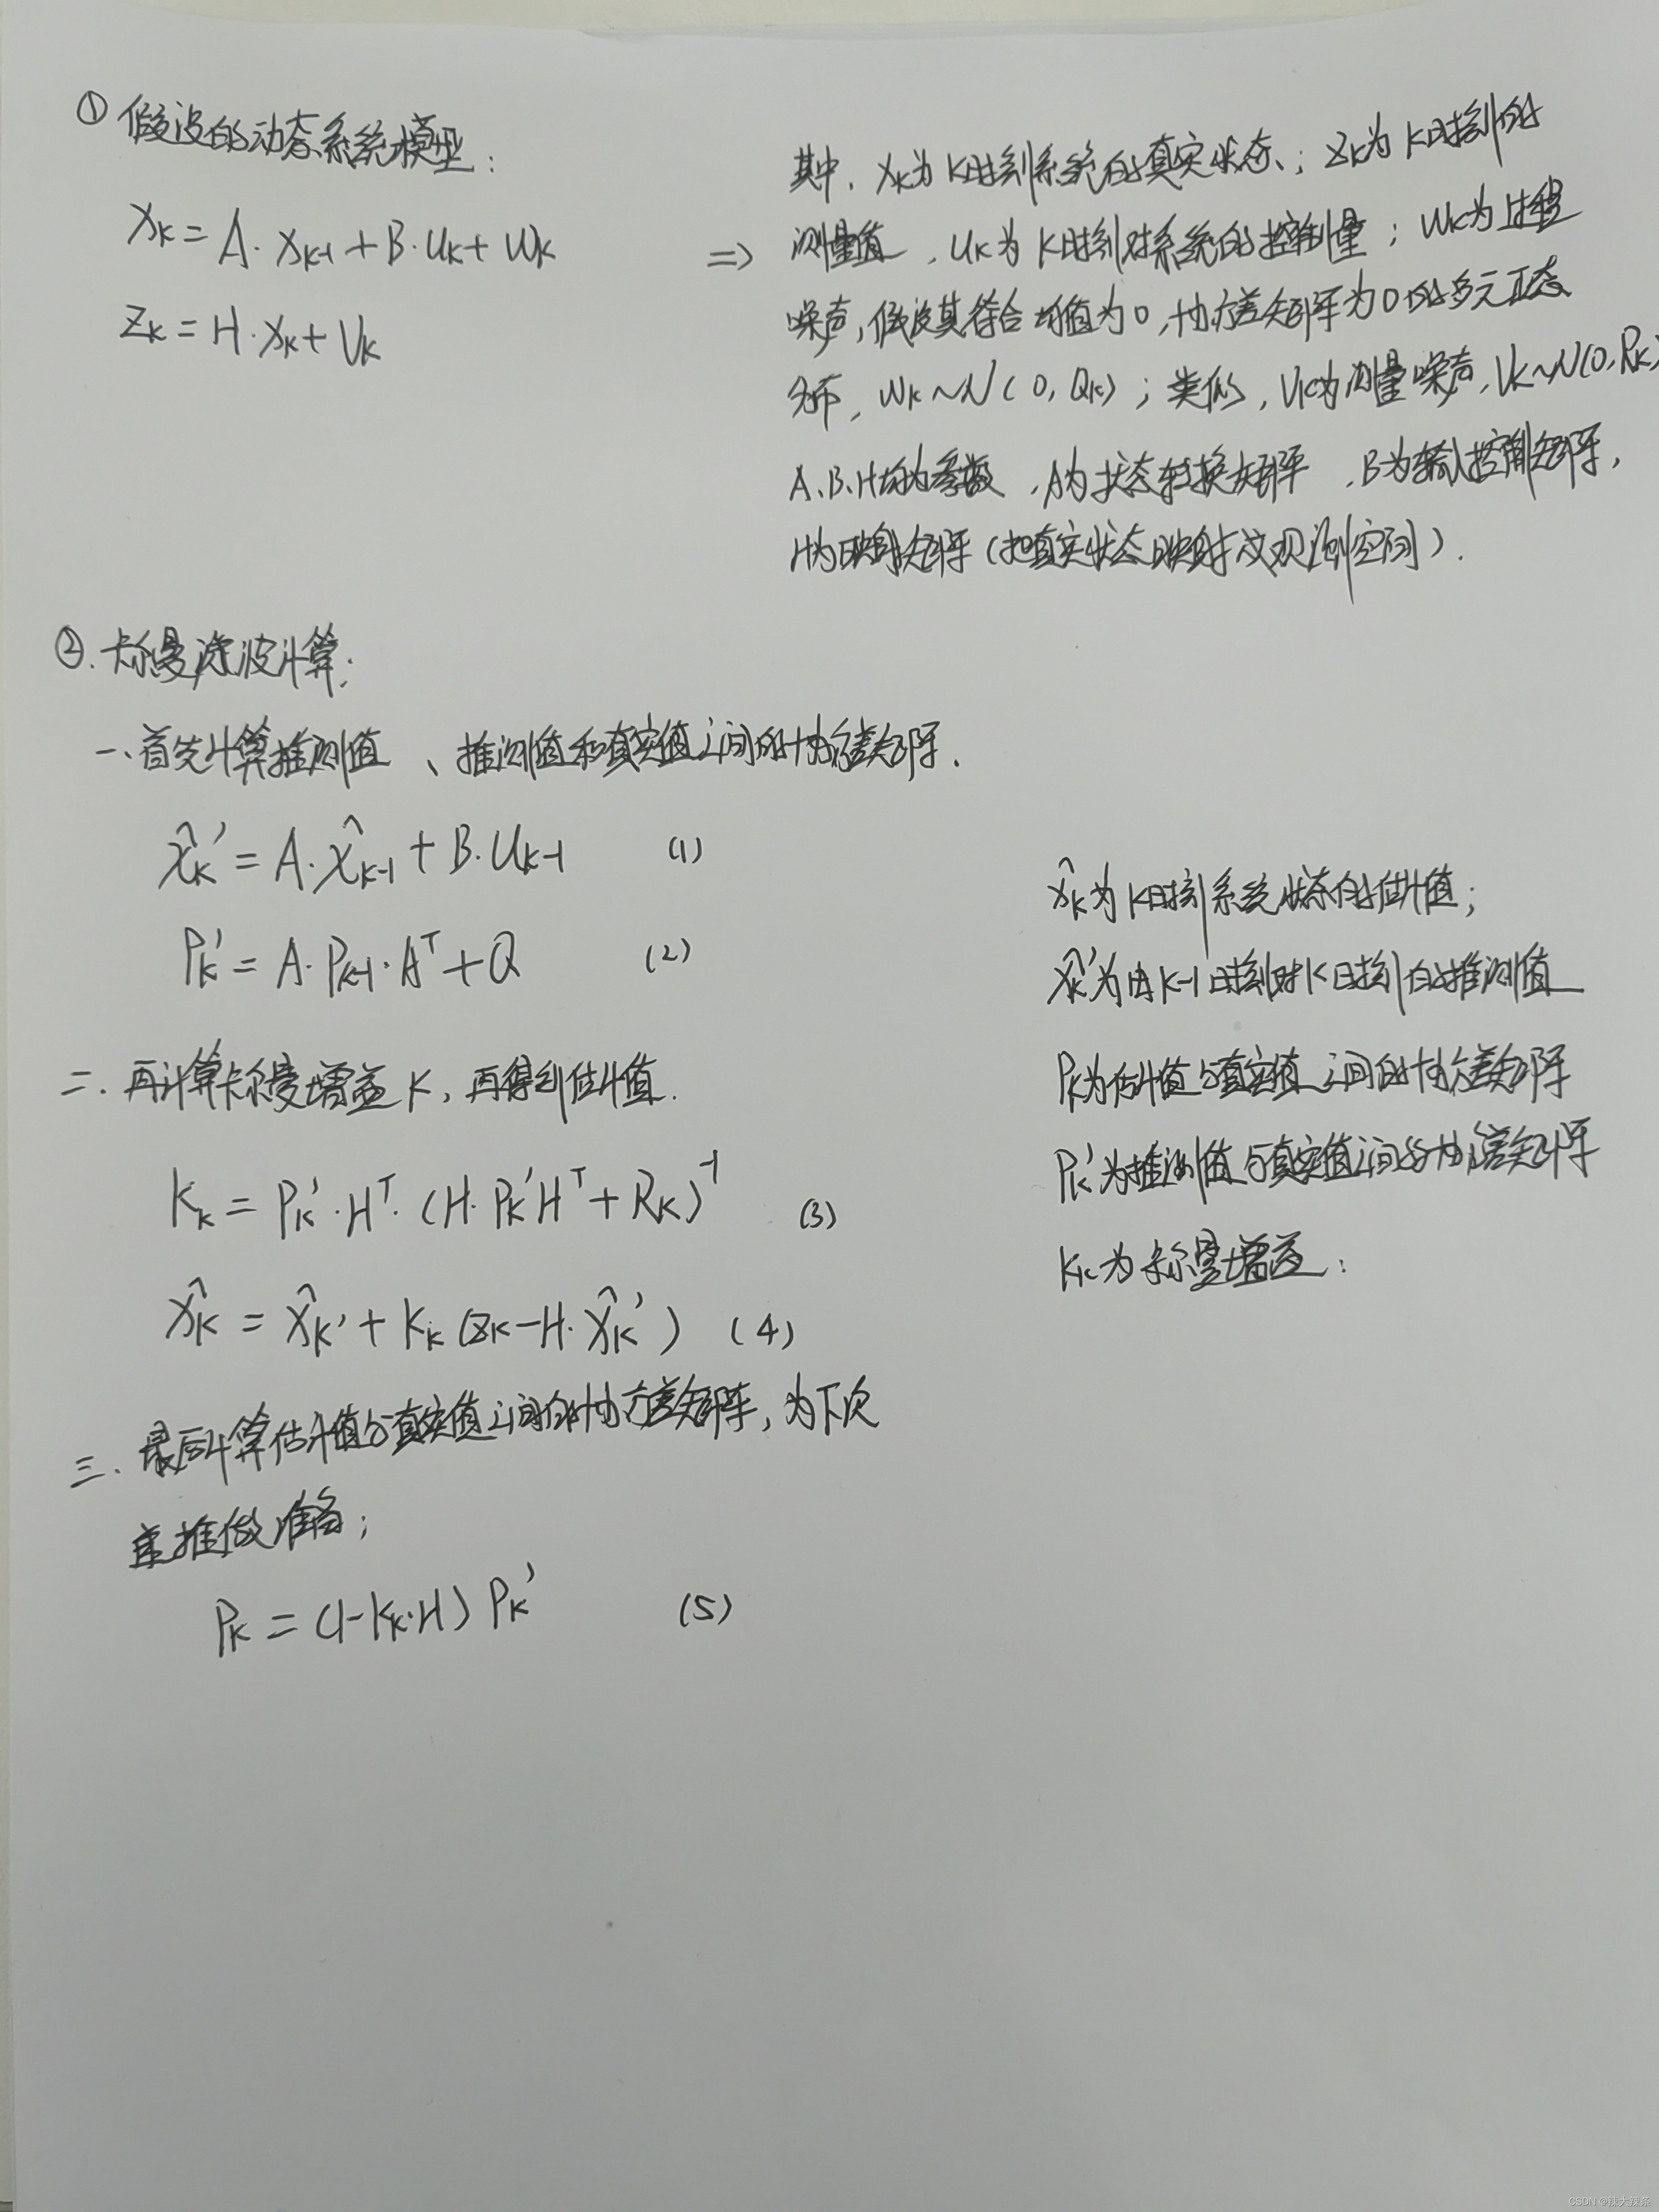 ① 假设的动态系统模型:
xₖ = A·xₖ₋₁ + B·uₖ + wₖ
zₖ = H·xₖ + vₖ
⇒
其中,xₖ为k时刻系统的真实状态;zₖ为k时刻的
测量值,uₖ为k时刻对系统的控制量;wₖ为过程
噪声,假设其符合均值为0,协方差矩阵为Q的多元正态
分布,wₖ~N(0,Qₖ);类似,vₖ为测量噪声,vₖ~N(0,Rₖ)
A、B、H均为参数,A为状态转换矩阵,B为输入控制矩阵,
H为映射矩阵(把真实状态映射成观测空间).
②.卡尔曼滤波计算:
一、首先计算推测值、推测值和真实值之间的协方差矩阵.
x̂ₖ' = A·x̂ₖ₋₁ + B·uₖ₋₁ (1)
Pₖ' = A·Pₖ₋₁·Aᵀ + Q (2)
二.再计算卡尔曼增益K,再得到估计值.
Kₖ = Pₖ'·Hᵀ·(H·Pₖ'Hᵀ + Rₖ)⁻¹ (3)
x̂ₖ = x̂ₖ' + Kₖ(zₖ - H·x̂ₖ') (4)
三.最后计算估计值与真实值之间的协方差矩阵,为下次
推做准备;
Pₖ = (I - Kₖ·H)Pₖ' (5)
x̂ₖ为k时刻系统状态的估计值;
x̂ₖ'为由k-1时刻对k时刻的推测值
Pₖ为估计值与真实值之间的协方差矩阵
Pₖ'为推测值与真实值之间的协方差矩阵
Kₖ为卡尔曼增益:
CSDN @辣大辣条